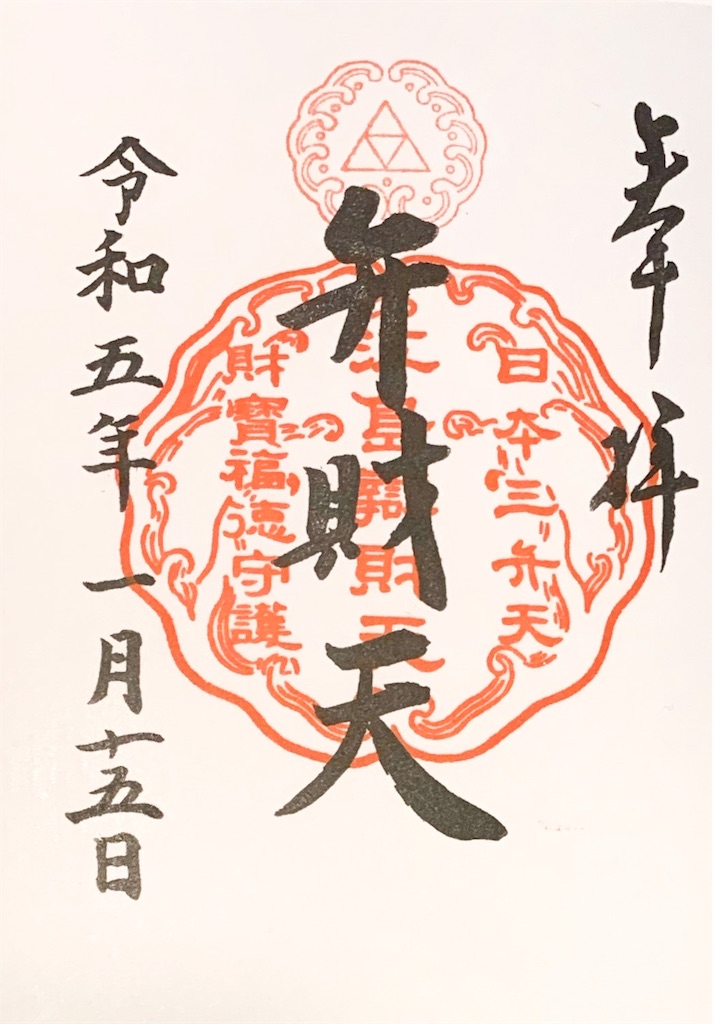 奉拝
日本三弁天
江島辯財天
弁財天
財寶福徳守護
令和五年一月十五日